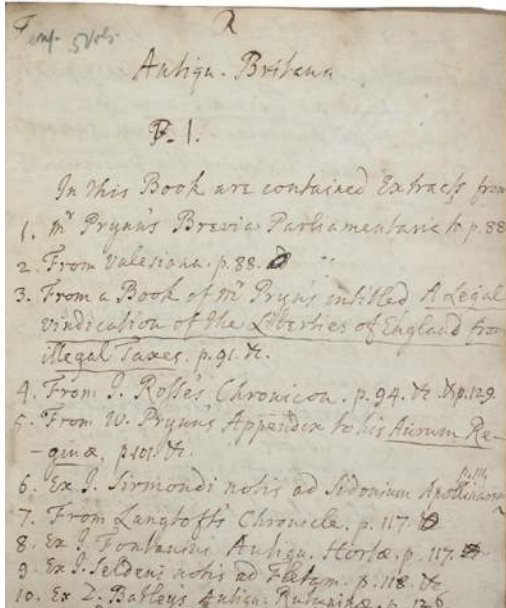 5 Vols.
Antiqu. Britana
P. 1.
In this Book are contained Extracts from
1. Mr Prynn's Brevia Parliamentaria to p. 88
2. From Valesiana. p. 88.
3. From a Book of Mr Pryn's intitled A Legal
vindication of the Liberties of England from
illegal Taxes. p. 91. &c.
4. From J. Rosse's Chronicon. p. 94. &c. & p. 129.
5. From W. Prynn's Appendix to his Aurum Re-
-ginæ. p. 101. &c.
6. Ex J. Sirmondi notis ad Sidonium Apollinarem p. 114
7. From Langtoft's Chronicle. p. 117.
8. Ex J. Fontanini Antiqu. Hortæ. p. 117.
9. Ex J. Seldeni notis ad Fletam. p. 118. &c
10. Ex Antiqu. p. 126